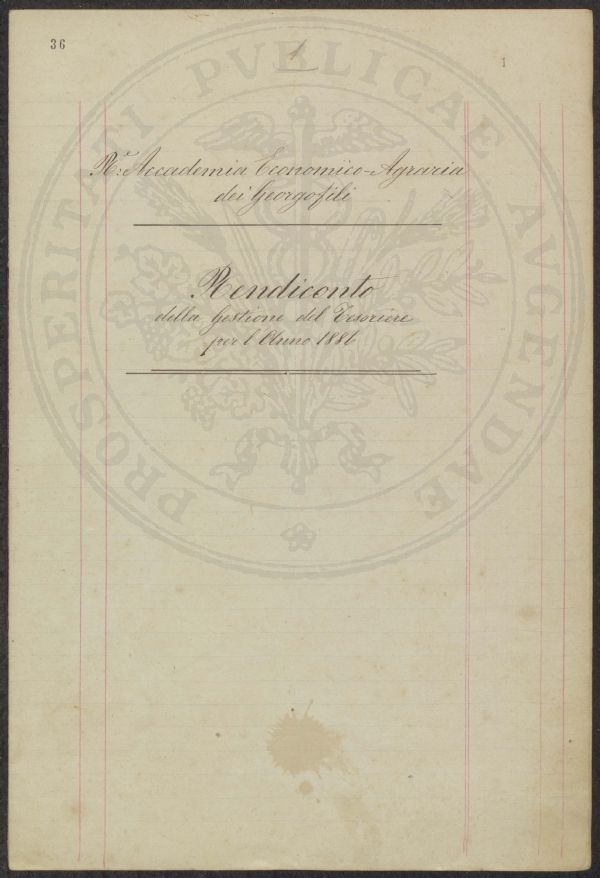 36
1
1
R.a Accademia Economico-Agraria
dei Georgofili
Rendiconto
della Gestione del Tesoriere
per l'Anno 1886
PROSPERITATI PVBLICAE AVGENDAE